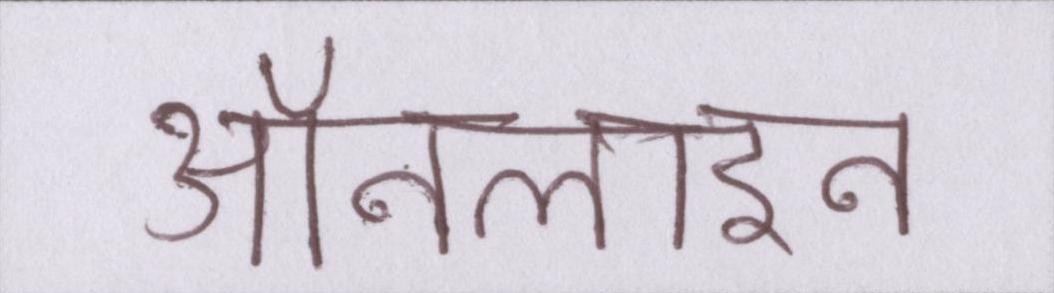 ऑनलाइन